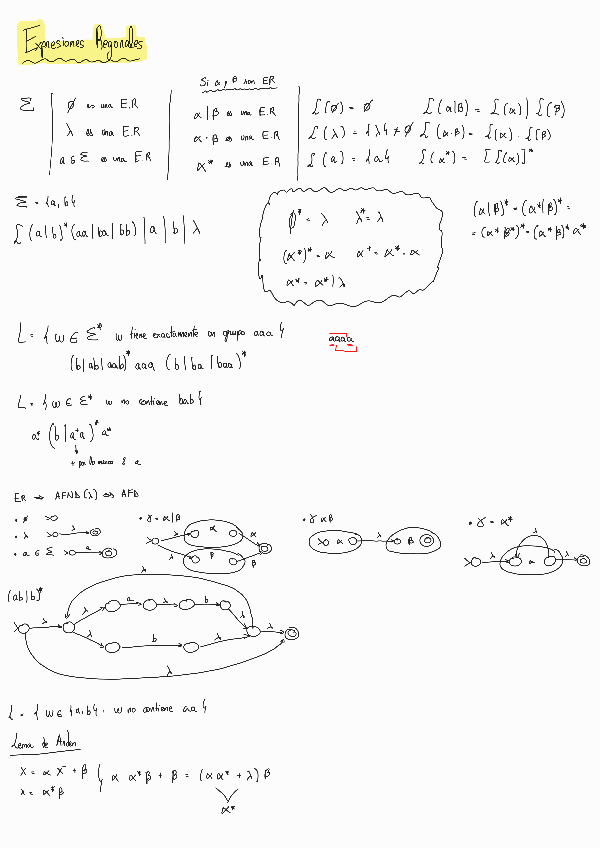 Expresiones Regonales
Σ
∅ es una E.R
λ es una E.R
a ∈ Σ es una E.R
Si α y β son ER
α | β es una E.R
α · β es una E.R
α* es una E.R
L(∅) = ∅    L(α|β) = L(α) | L(β)
L(λ) = {λ} ≠ ∅    L(α·β) = L(α) · L(β)
L(a) = {a}    L(α*) = [L(α)]*
Σ = {a, b}
L (a|b)* (aa|ba|bb) | a | b | λ
∅* = λ    λ* = λ
(α*)* = α    α⁺ = α* · α
α* = α* | λ
(α|β)* = (α*|β)* =
= (α* β*)* = (α*|β)* α*
L = { w ∈ Σ* w tiene exactamente un grupo aaa }
(b|ab|aab)* aaa (b|ba|baa)*
aaaa
L = { w ∈ Σ* w no contiene bab }
a* (b | a⁺a)* a*
+ por lo menos 1 a
ER → AFND(λ) ⇔ AFD
• ∅
• λ    λ
• a ∈ Σ    a
• γ = α|β
λ    α    α
λ    β    β
• γ αβ
α    λ    β
• γ = α*
λ
λ    α    λ
(ab|b)*
λ
λ    λ    a    λ    b    λ    λ
λ    b    λ
λ
L = { w ∈ {a, b} · w no contiene aa }
Lema de Arden
X = α X + β
X = α* β
α α* β + β = (α α* + λ) β
α*